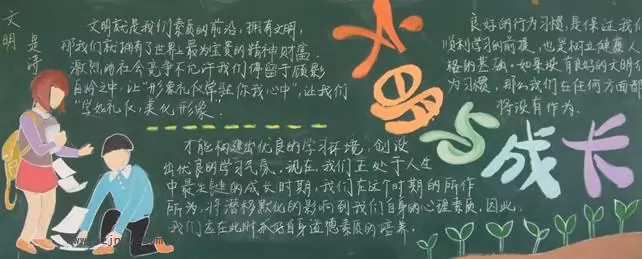 文明
是诗
文明就是我们素质的前沿,拥有文明,
那我们就拥有了世界上最为宝贵的精神财富.
激烈的社会竞争不允许我们停留于顾影
自怜之中,让"形象礼仪常驻你我心中",让我们
"学知礼仪,美化形象.
才能构建出优良的学习环境,创设
出优良的学习气氛。现在,我们正处于人生
中最关键的成长时期,我们在这个时期的所作
所为,将潜移默化的影响到我们自身的心理素质,因此,
我们应在此时 自身道德素质的培养。
文明与成长
良好的行为习惯,是保证我们
顺利学习的前提,也是树立健康人
格的基础。如果没有良好的文明
为习惯,那么我们在任何方面都
将没有作为.